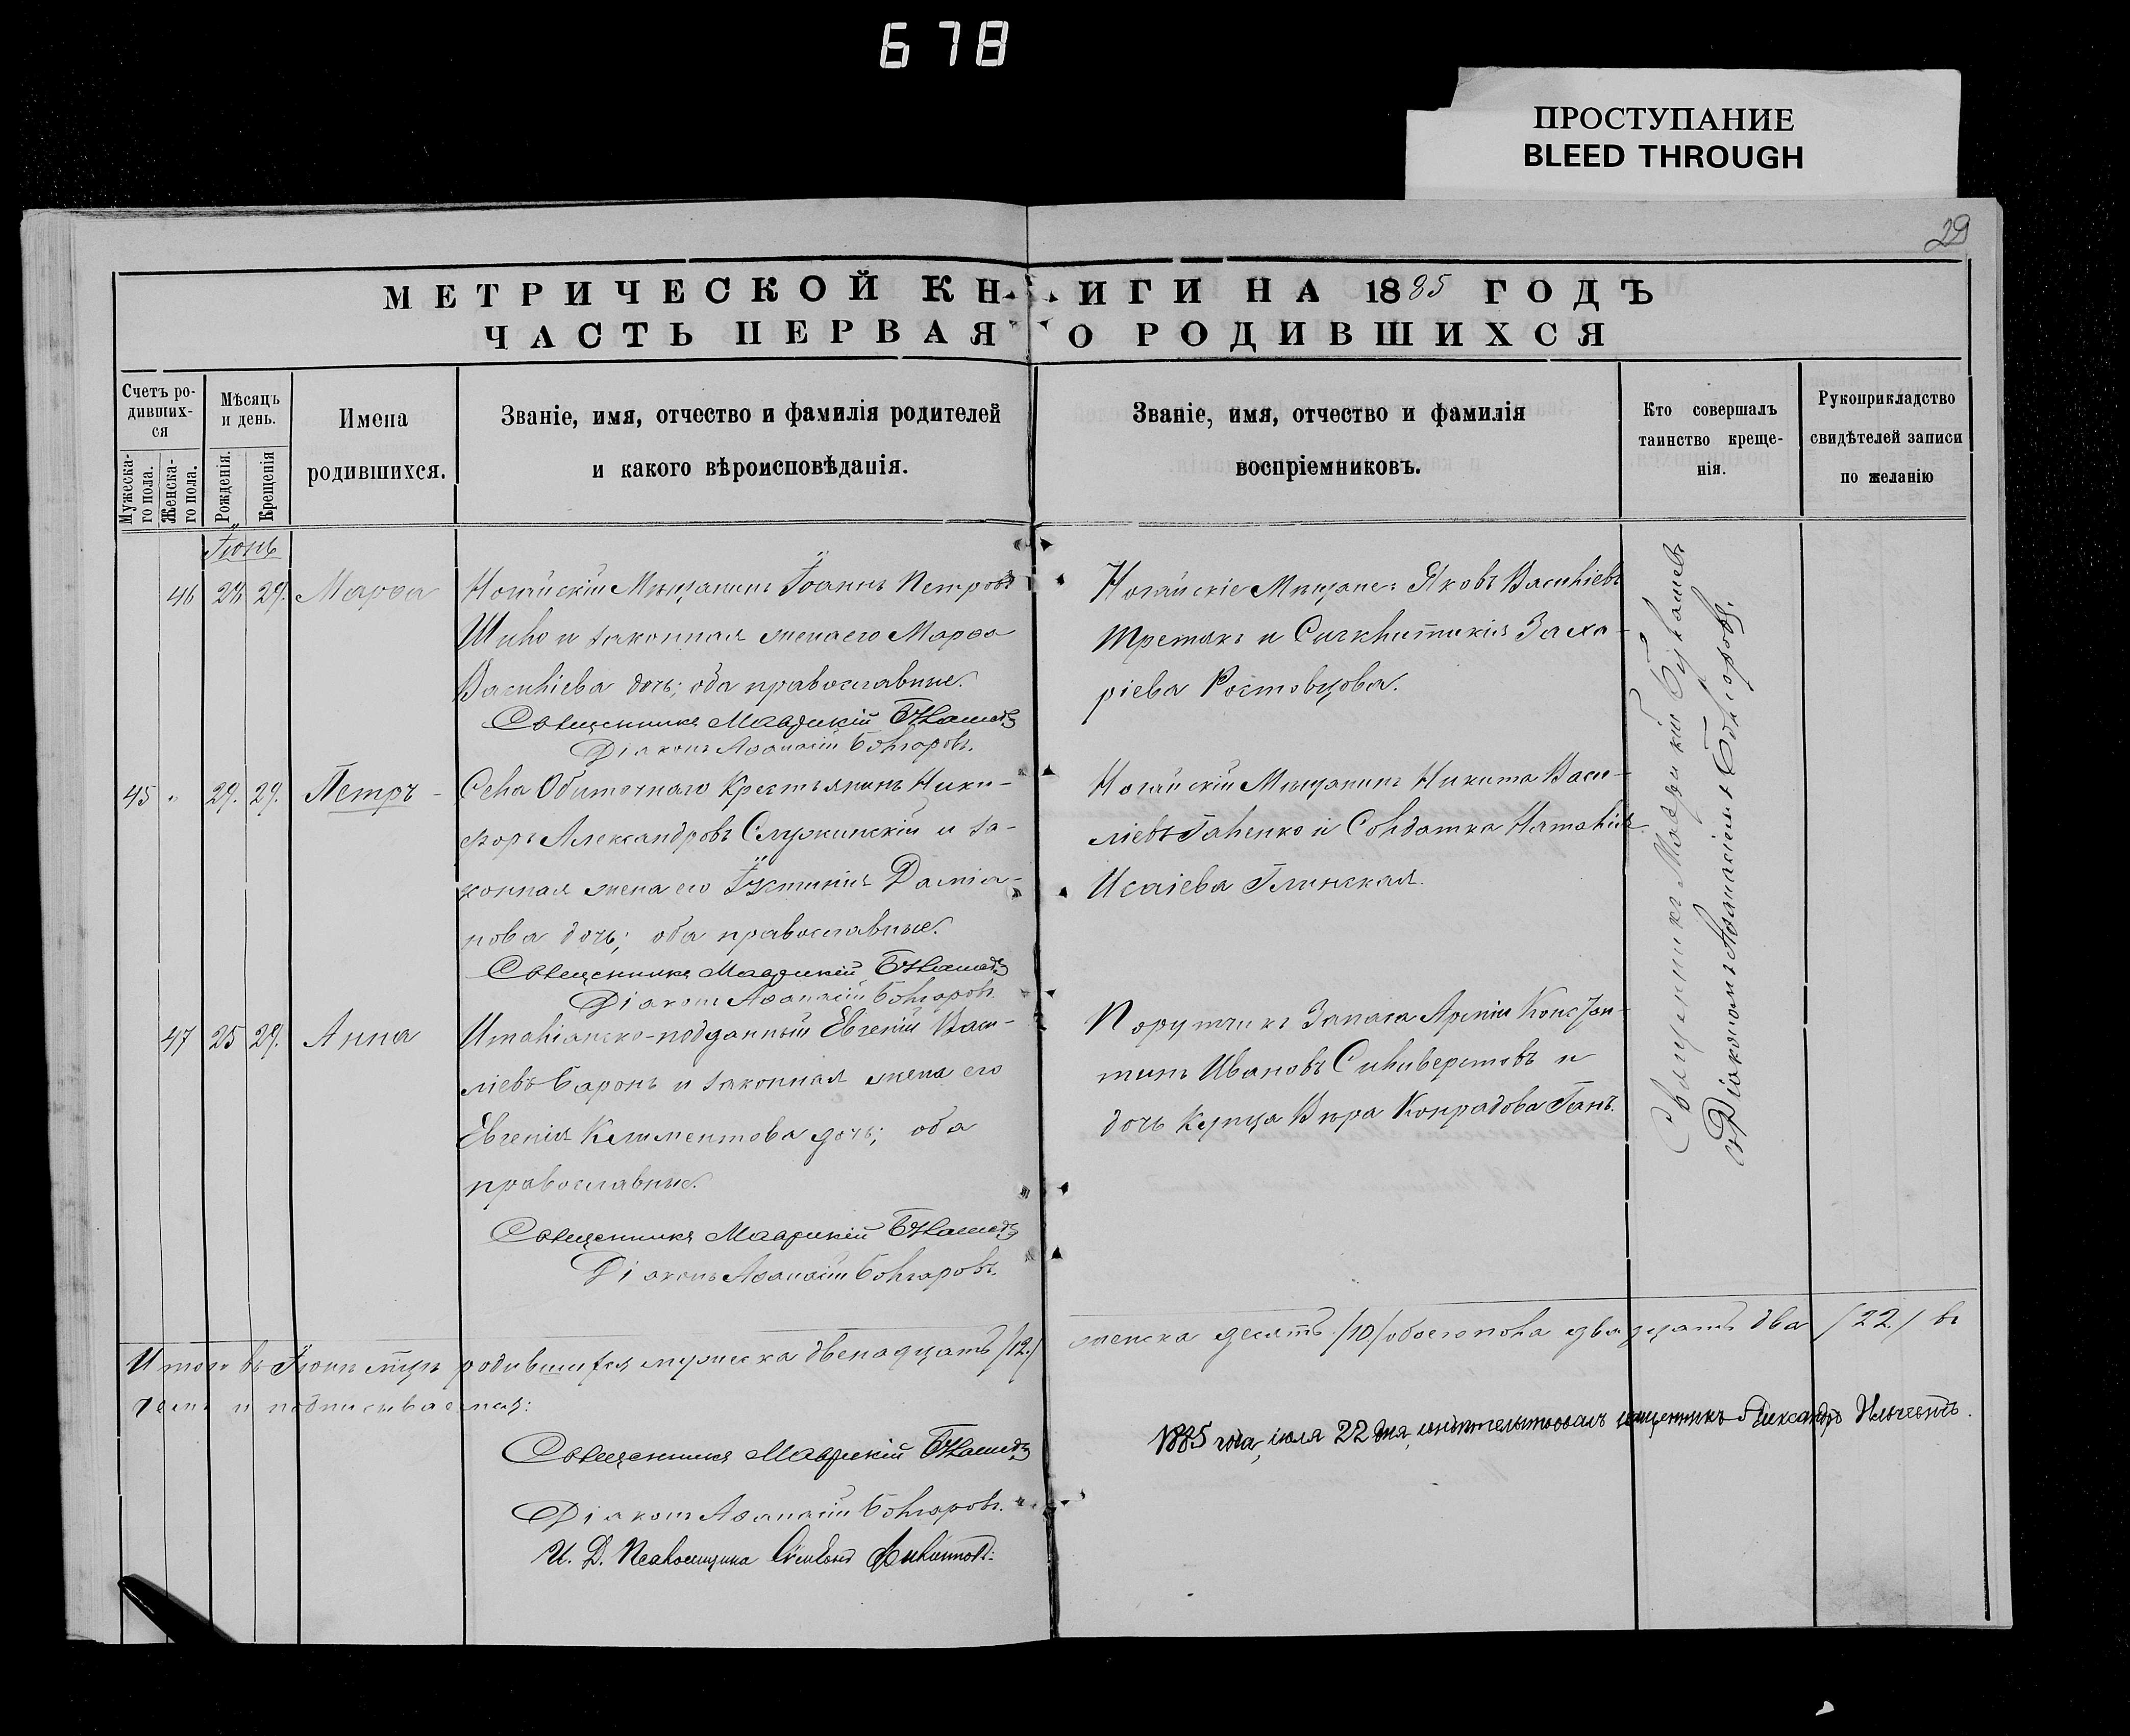 678
ПРОСТУПАНИЕ
BLEED THROUGH
29
МЕТРИЧЕСКОЙ КНИГИ НА 1885 ГОДЪ
ЧАСТЬ ПЕРВАЯ О РОДИВШИХСЯ
Счетъ родивших-
ся
Мужеска-
го пола.
Женска-
го пола.
Мѣсяцъ
и день.
Рожденія.
Крещенія
Имена
родившихся.
Званіе, имя, отчество и фамилія родителей
и какого вѣроисповѣданія.
Званіе, имя, отчество и фамилія
воспріемниковъ.
Кто совершалъ
таинство креще-
нія.
Рукоприкладство
свидѣтелей записи
по желанію
Іюнь
46 28 29. Марѳа
Ногайскій Мѣщанинъ Іоаннъ Петровъ
Шило и законная жена его Марѳа
Васильева дочь; оба православные.
Священникъ Маврикій
Діаконъ Аѳанасій Болгаровъ.
Ногайскіе Мѣщане: Яковъ Васильевъ
Третякъ и Синклитикія Заха-
ріева Ростовцова.
45 " 29. 29. Петръ
Села Обиточнаго Крестьянинъ Ники-
форъ Александровъ Служинскій и за-
конная жена его Іустинія Даміа-
нова дочь; оба православные.
Священникъ Маврикій
Діаконъ Аѳанасій Болгаровъ
Ногайскій Мѣщанинъ Никита Васи-
ліевъ Галенко и Солдатка Наталія
Исаіева Глинская.
47 25 29. Анна
Италіанско-подданный Евгеній Васи-
ліевъ Баронъ и законная жена его
Евгенія Климентова дочь; оба
православные.
Священникъ Маврикій
Діаконъ Аѳанасій Болгаровъ.
Поручикъ Запаса Арміи Констан-
тинъ Ивановъ Силиверстовъ и
дочь Купца Вѣра Конрадова Ганъ.
Священникъ Маврикій
съ Діакономъ Аѳанасіемъ Болгаровымъ.
Итого въ Іюнѣ м-цѣ родившихся мужеска двенадцать /12./ женска десять /10/ обоего пола двадцать два /22/ въ
чемъ и подписываемся:
Священникъ Маврикій
Діаконъ Аѳанасій Болгаровъ.
И. Д. Псаломщика
1885 года, іюля 22 дня, свидѣтельствовалъ священникъ Александръ